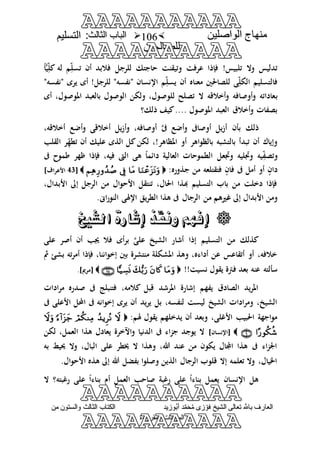 منهاج الواصلين
106
الباب الثالث: التسليم
تدليس ولا تلبيس! فإذا عرفت وتيقنت حاجتك للرجل فلابد أن تسلِّم له كلِّيًّا
فالتسليم الكلِّى للصالحين معناه أن يسلِّم الإنسان "نفسه" للرجل! أى يرى "نفسه"
بعاداته وأوصافه وأخلاقه لا تصلح للوصول، ولكن الوصول بالعبد الموصول، أى
بصفات وأخلاق العبد الموصول .... كيف ذلك؟
ذلك بأن أزيل أوصافى وأضع فىَّ أوصافه، وأزيل أخلاقى وأضع أخلاقه،
وإياك أن تبدأ بالتشبه بالظواهر أو المظاهر!، لكن كل الذى عليك أن تطهِّر القلب
وتصفِّيه وتجليه وتجعل الطموحات العالية دائماً هى التى فيه، فإذا ظهر طموح فى
دانٍ أو أمل فى فانٍ فتقتلعه من جذوره: ﴿ وَنَزَعْنَا مَا فِى صُدُورِهِم ﴾ [43 الأعراف]
فإذا دخلت من باب التسليم بهذا الحال، تنتقل الأحوال من الرجل إلى الأبدال،
ومن الأبدال إلى غيرهم من الرجال فى هذا الطريق الإلهى النورانى.
إفهم ونفِّذ إشارة الشيخ
كذلك من التسليم إذا أشار الشيخ علىَّ برأى فلا يجب أن أصر على
خلافه، أو أتقاعس عن أداءه، وهذ المشكلة منتشرة بين إخواننا، فإذا أمرته بشئ ثم
سألته عنه بعد فترة يقول نسيت!! ﴿ وَمَا كَانَ رَبُّكَ نَسِيًّا ﴾ [مريم].
المريد الصادق يفهم إشارة المرشد قبل كلامه، فتبلج فى صدره مرادات
الشيخ، ومرادات الشيخ ليست لنفسه، بل يريد أن يرى إخوانه فى المحل الأعلى فى
مواجهة الحبيب الأعلى، وبعد أن يدخلهم يقول لهم: ﴿ لَا نُرِيدُ مِنكُمْ جَزَآءً وَلَا
شُكُورًا ﴾ [الإنسان] لا يوجد جزاء فى الدنيا والآخرة يعادل هذا العمل، لكن
الجزاء فى هذا المجال يكون من عند الله، وهذا لا يخطر على البال، ولا يحيط به
الخيال، ولا تعلمه إلا قلوب الرجال الذين وصلوا بفضل الله إلى هذه الأحوال.
هل الإنسان يعمل بناءاً على رغبة صاحب العمل أم بناءاً على رغبته؟ لا
العارف بالله تعالى الشيخ فوزى مُحَمَّد أبُوزيد
الكتـاب الثالث والستون من